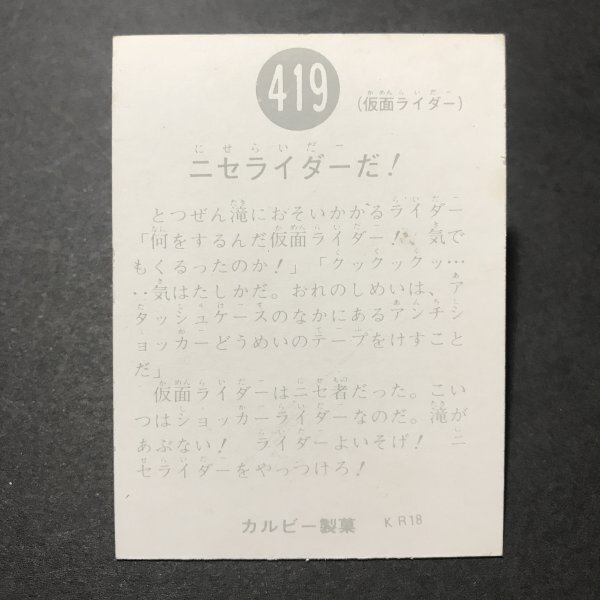 419
(仮面ライダー)
ニセライダーだ!
とつぜん滝におそいかかるライダー
「何をするんだ仮面ライダー! 気で
もくるったのか!」「クックックッ…
…気はたしかだ。おれのしめいは、ア
タッシュケースのなかにあるアンチシ
ョッカーどうめいのテープをけすこと
だ」
仮面ライダーはニセ者だった。こい
つはショッカーライダーなのだ。滝が
あぶない! ライダーよいそげ! ニ
セライダーをやっつけろ!
カルビー製菓 KR18